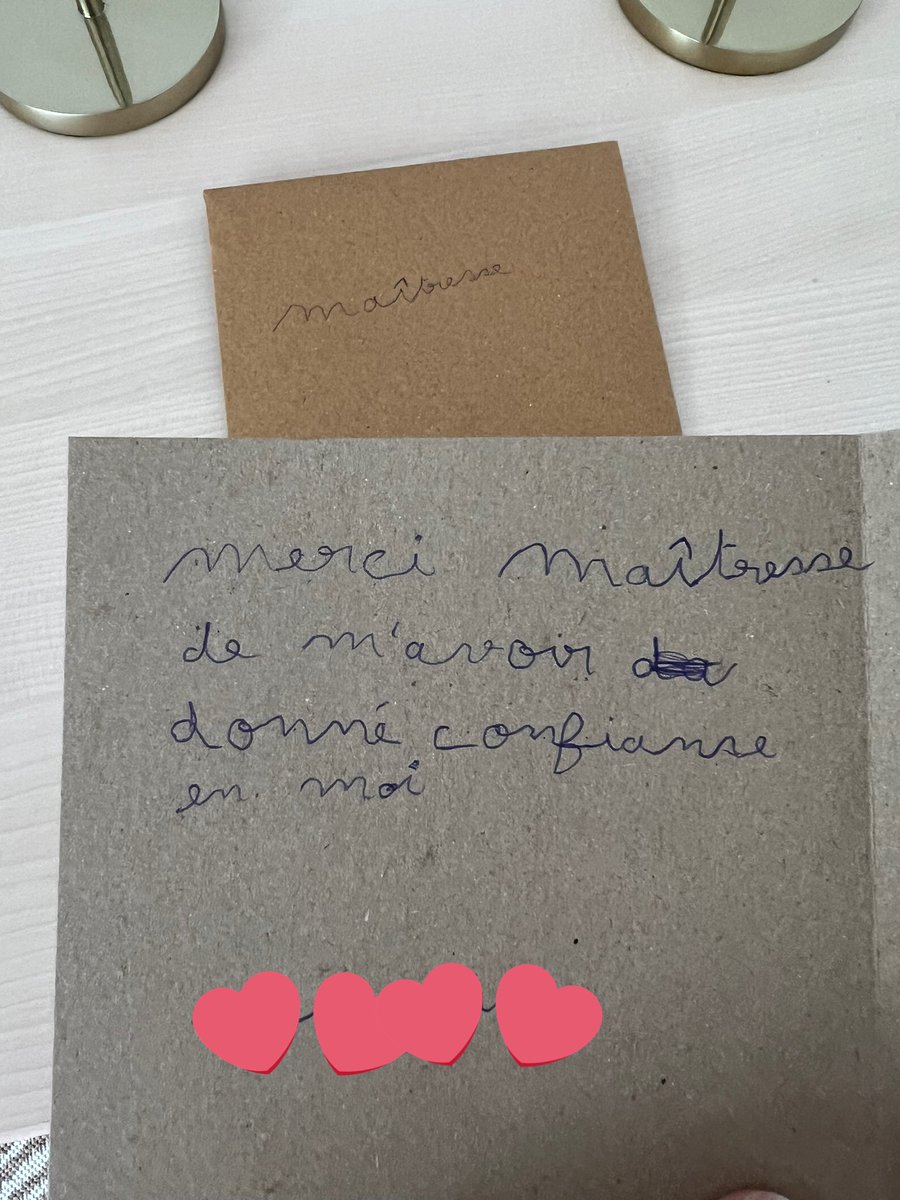 maîtresse
merci maîtresse
de m'avoir
donné confianse
en moi